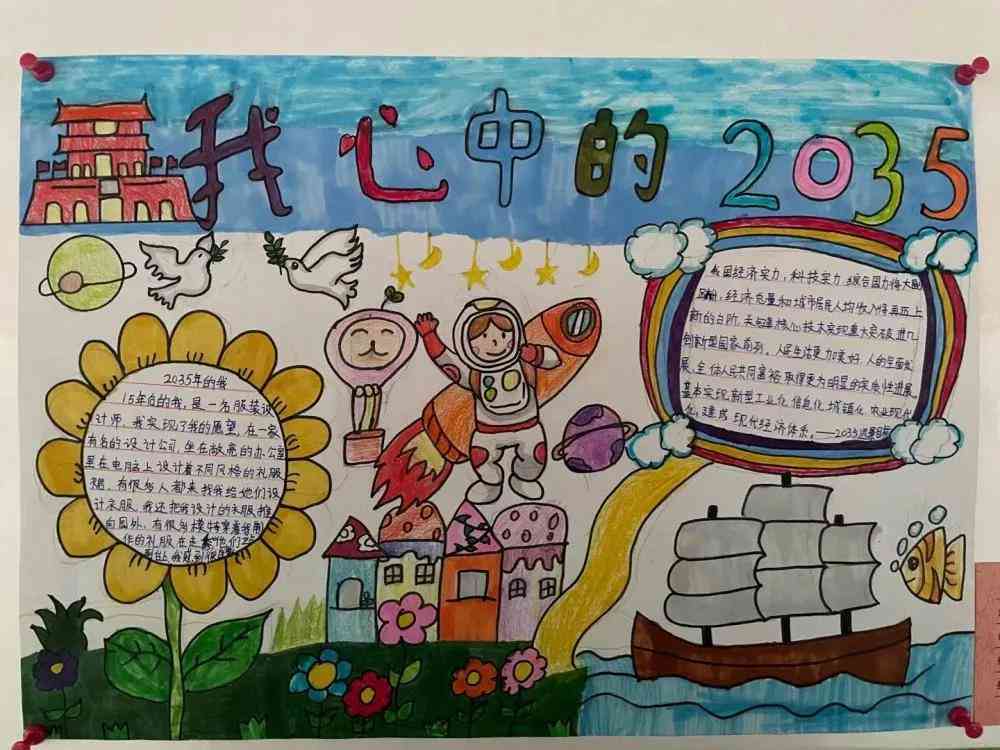 我心中的2035
2035年的我
15年后的我,是一名服装设
计师,我实现了我的愿望,在一家
有名的设计公司,坐在敞亮的办公室
里在电脑上设计着不同风格的礼服
裙,有很多人都来找我给她们设
计衣服,我还把我设计的衣服推
向国外,有很多模特穿着我制
作的礼服在走
我国经济实力,科技实力,综合国力将大
经济总量和城市居民人均收入将再迈上
新的台阶,关键核心技术实现重大突破,进入
创新型国家前列。人民生活更加美好,人的全面发
展,全体人民共同富裕取得更为明显的实质性进展,
基本实现新型工业化,信息化,城镇化,农业现代
化,建成现代经济体系。——2035远景目标